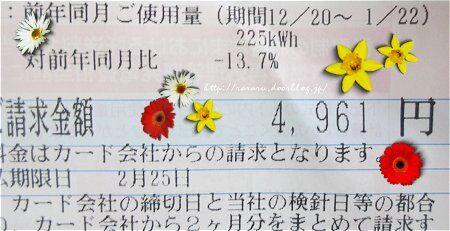 ：前年同月ご使用量（期間12／20～ 1／22）
225kWh
対前年同月比 -13.7%
http://rararu.doorblog.jp/
請求金額 4,961 円
料金はカード会社からの請求となります。
期限日 2月25日
カード会社の締切日と当社の検針日等の都合
カード会社から２ヶ月分をまとめて請求す